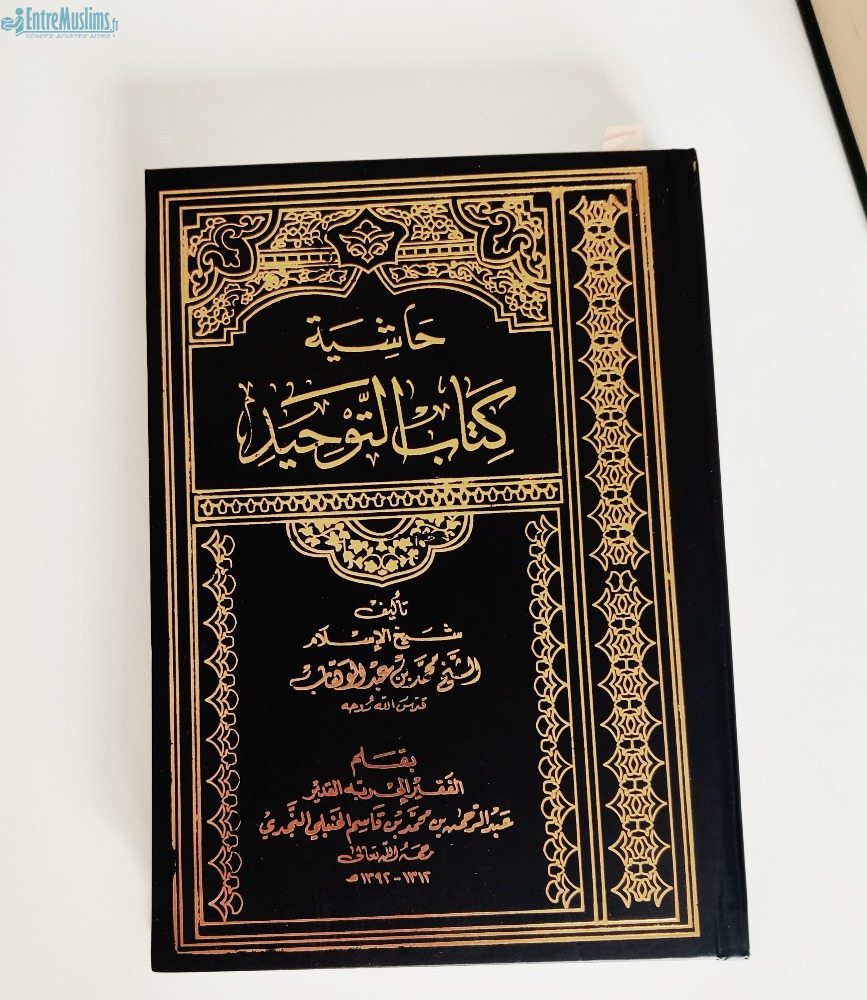 EntreMuslims.fr
VENDEZ ACHETEZ AIDEZ !
حَاشِيَة
كِتَابُ التَّوْحِيدِ
تأليف
شَيخ الإسْلَام
الشَّيْخ مُحَمَّد بْن عَبْد الْوَهَّاب
قدّس الله رُوحه
بقَلَم
الفَقير إلى ربّه القَدير
عَبْد الرَّحمن بن محمَّد بْن قَاسِم الحَنبَلي النَّجْدي
رحمَهُ اللّه تعَالى
١٣١٢ - ١٣٩٢ هـ